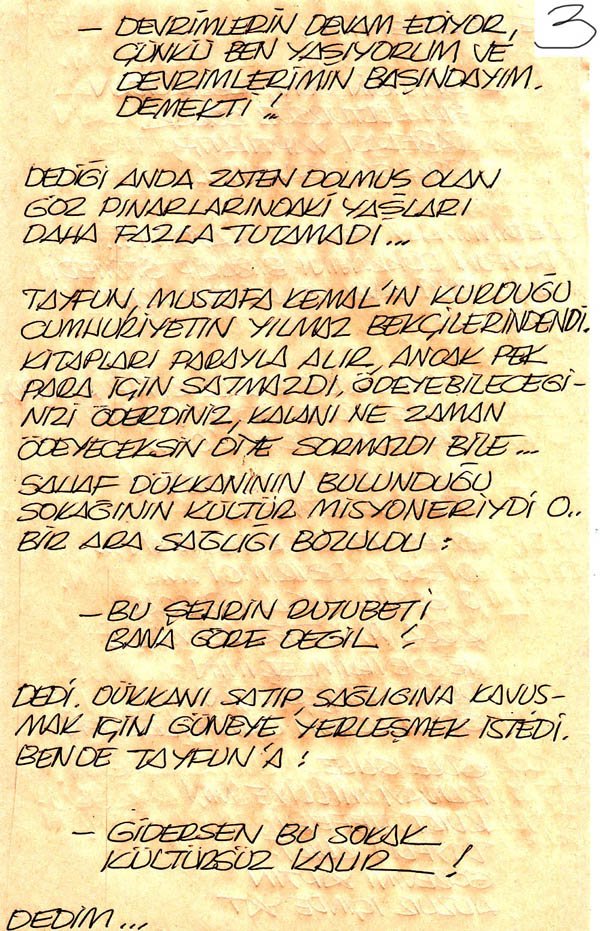 3
— DEVRİMLERİN DEVAM EDİYOR,
ÇÜNKÜ BEN YAŞIYORUM VE
DEVRİMLERİMİN BAŞINDAYIM.
DEMEKTİ!
DEDİĞİ ANDA ZATEN DOLMUŞ OLAN
GÖZ PINARLARINDAKİ YAŞLARI
DAHA FAZLA TUTAMADI...
TAYFUN, MUSTAFA KEMAL'IN KURDUĞU
CUMHURİYETİN YILMAZ BEKÇİLERİNDENDİ.
KİTAPLARI PARAYLA ALIR, ANCAK PEK
PARA İÇİN SATMAZDI. ÖDEYEBİLECEĞİ-
NİZİ ÖDERDİNİZ, KALANI NE ZAMAN
ÖDEYECEKSİN DİYE SORMAZDI BİLE...
SAHAF DÜKKANININ BULUNDUĞU
SOKAĞININ KÜLTÜR MİSYONERİYDİ O..
BİR ARA SAĞLIĞI BOZULDU:
— BU ŞEHRİN RUTUBETİ
BANA GÖRE DEĞİL!
DEDİ. DÜKKANI SATIP, SAĞLIĞINA KAVUŞ-
MAK İÇİN GÜNEYE YERLEŞMEK İSTEDİ.
BENDE TAYFUN'A:
— GİDERSEN BU SOKAK
KÜLTÜRSÜZ KALIR!
DEDİM...